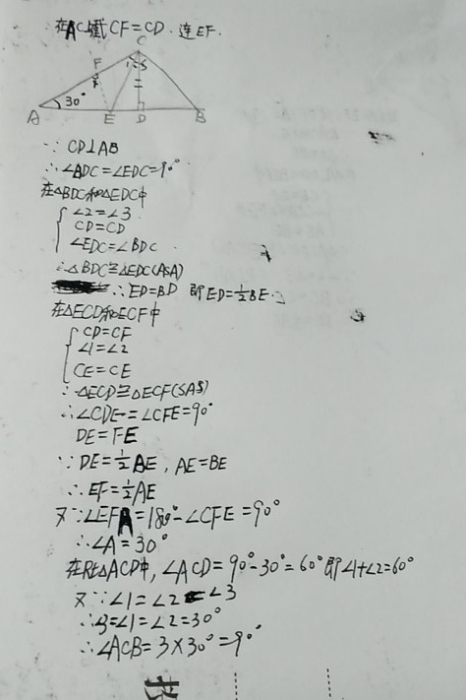 在AC上截CF=CD.连EF.
C
F
1 2 3
30°
A E D B
∵ CD⊥AB
∴∠ADC=∠EDC=90°
在△BDC和△EDC中
∠2=∠3
CD=CD
∠EDC=∠BDC
∴△BDC≌△EDC(ASA)
∴ED=BD 即ED=½BE
在△ECD和△ECF中
CD=CF
∠1=∠2
CE=CE
∴△ECD≌△ECF(SAS)
∴∠CDE=∠CFE=90°
DE=FE
∵DE=½BE,AE=BE
∴EF=½AE
又∵∠EFA=180°-∠CFE=90°
∴∠A=30°
在Rt△ACD中,∠ACD=90°-30°=60°即∠1+∠2=60°
又∵∠1=∠2=∠3
∴∠3=∠1=∠2=30°
∴∠ACB=3×30°=90°